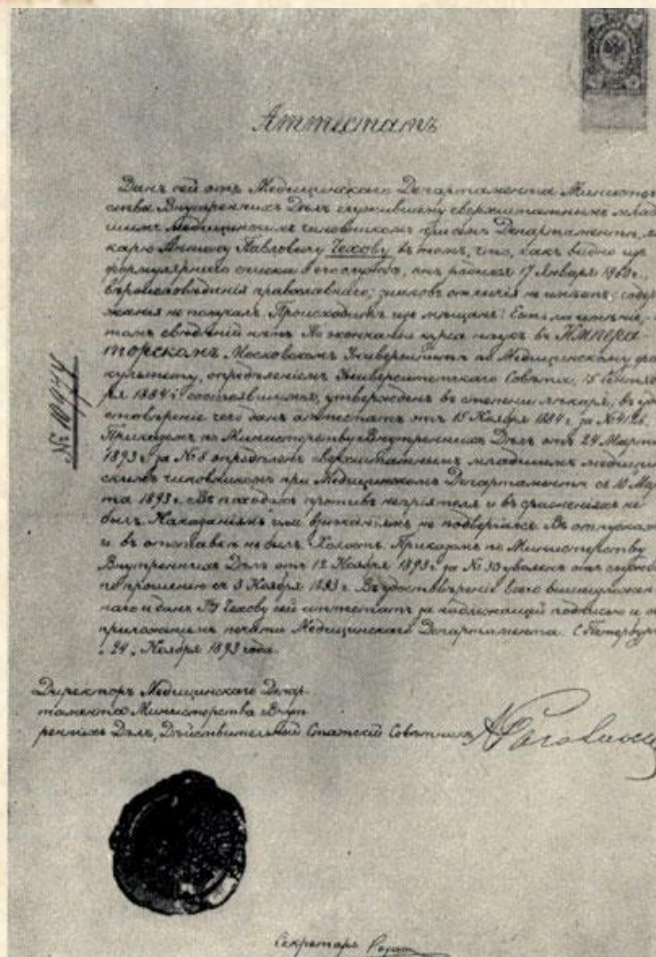 Аттестатъ
Данъ сей отъ Медицинскаго Департамента Министер
ства Внутреннихъ Дѣлъ служившему сверхштатнымъ млад
шимъ Медицинскимъ чиновникомъ при семъ Департаментѣ, лѣ
карю Антону Павловичу Чехову въ томъ, что, какъ видно изъ
формулярнаго списка о его службѣ, онъ родился 17 Января 1860 г.,
вѣроисповѣданія православнаго; знаковъ отличія не имѣетъ; содер
жанія не получалъ. Происходитъ изъ мѣщанъ. Есть ли имѣніе,
томъ свѣдѣній нѣтъ. По окончаніи курса наукъ въ ИМПЕРА
ТОРСКОМЪ Московскомъ Университетѣ по Медицинскому фа
культету, опредѣленіемъ Университетскаго Совѣта, 15 Сентяб
ря 1884 г. состоявшимся, утвержденъ въ степени лѣкаря, въ удо
стовѣреніе чего данъ аттестатъ отъ 15 Ноября 1884 г. за №
Приказомъ по Министерству Внутреннихъ Дѣлъ отъ 24 Марта
1893 г. за № 8 опредѣленъ сверхштатнымъ младшимъ медицин
скимъ чиновникомъ при Медицинскомъ Департаментѣ съ 10 Мар
та 1893 г. Въ походахъ противъ непріятеля и въ сраженіяхъ не
былъ. Наказаніямъ или взысканіямъ не подвергался. Въ отпускахъ
и въ отставкѣ не былъ. Холостъ. Приказомъ по Министерству
Внутреннихъ Дѣлъ отъ 12 Ноября 1893 г. за № 33 уволенъ отъ службы
по прошенію съ 3 Ноября 1893 г. Въ удостовѣреніе всего вышеизложен
наго и данъ Чехову сей аттестатъ за надлежащей подписью и съ
приложеніемъ печати Медицинскаго Департамента. С.Петербургъ
„24„ Ноября 1893 года.
№ 10974
Директоръ Медицинскаго Депар
тамента Министерства Внут
реннихъ Дѣлъ, Дѣйствительный Статскій Совѣтникъ
Секретарь